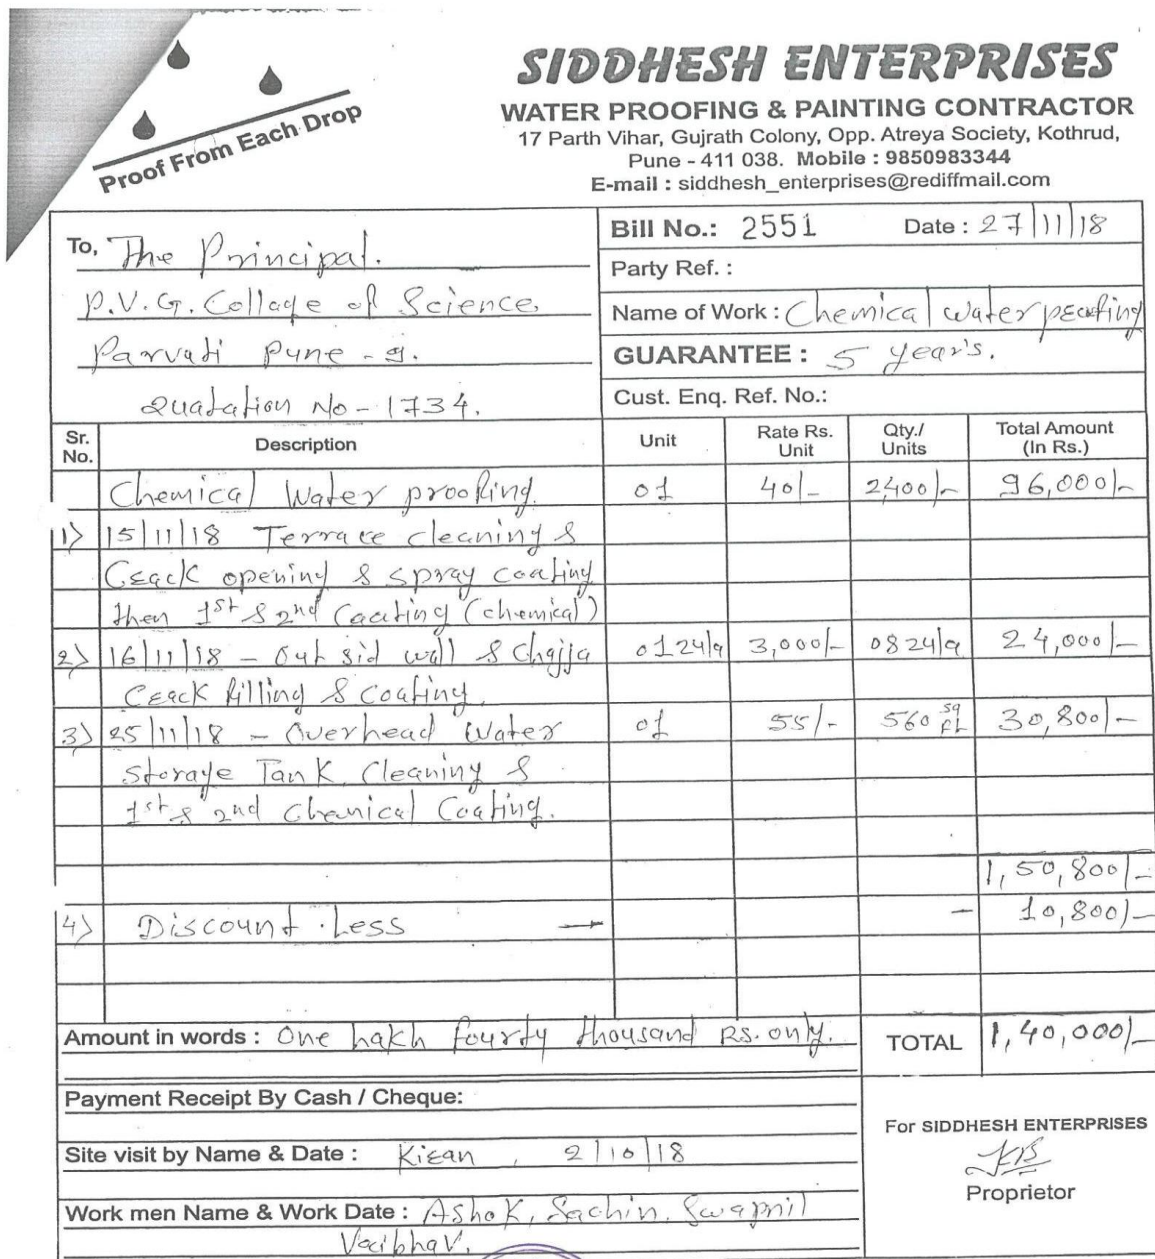 Proof From Each Drop
SIDDHESH ENTERPRISES
WATER PROOFING & PAINTING CONTRACTOR
17 Parth Vihar, Gujrath Colony, Opp. Atreya Society, Kothrud,
Pune - 411 038. Mobile : 9850983344
E-mail : siddhesh_enterprises@rediffmail.com
To, The Principal.
P.V.G. Collage of Science
Parvati Pune - 9.
Quatation No - 1734.
Bill No.: 2551 Date : 27/11/18
Party Ref. :
Name of Work : Chemical Water
GUARANTEE : 5 year's.
Cust. Enq. Ref. No.:
Sr. No. Description Unit Rate Rs. Unit Qty./ Units Total Amount (In Rs.)
Chemical Water proofing. 01 40/- 2400/- 96,000/-
1) 15/11/18 Terrace cleaning &
Crack opening & spray coating
then 1st & 2nd Coating (chemical)
2) 16/11/18 - Out sid wall & Chajja 01 3,000/- 08 24,000/-
Crack filling & coating.
3) 25/11/18 - Overhead Water 01 55/- 560 sq ft 30,800/-
Storage Tank Cleaning &
1st & 2nd Chemical Coating.
1,50,800/-
4) Discount . Less — - 10,800/-
Amount in words : One Lakh fourty thousand Rs. only. TOTAL 1,40,000/-
Payment Receipt By Cash / Cheque:
Site visit by Name & Date : Kiran , 2/10/18
Work men Name & Work Date : Ashok, Sachin, Swapnil
Vaibhav.
For SIDDHESH ENTERPRISES
Proprietor